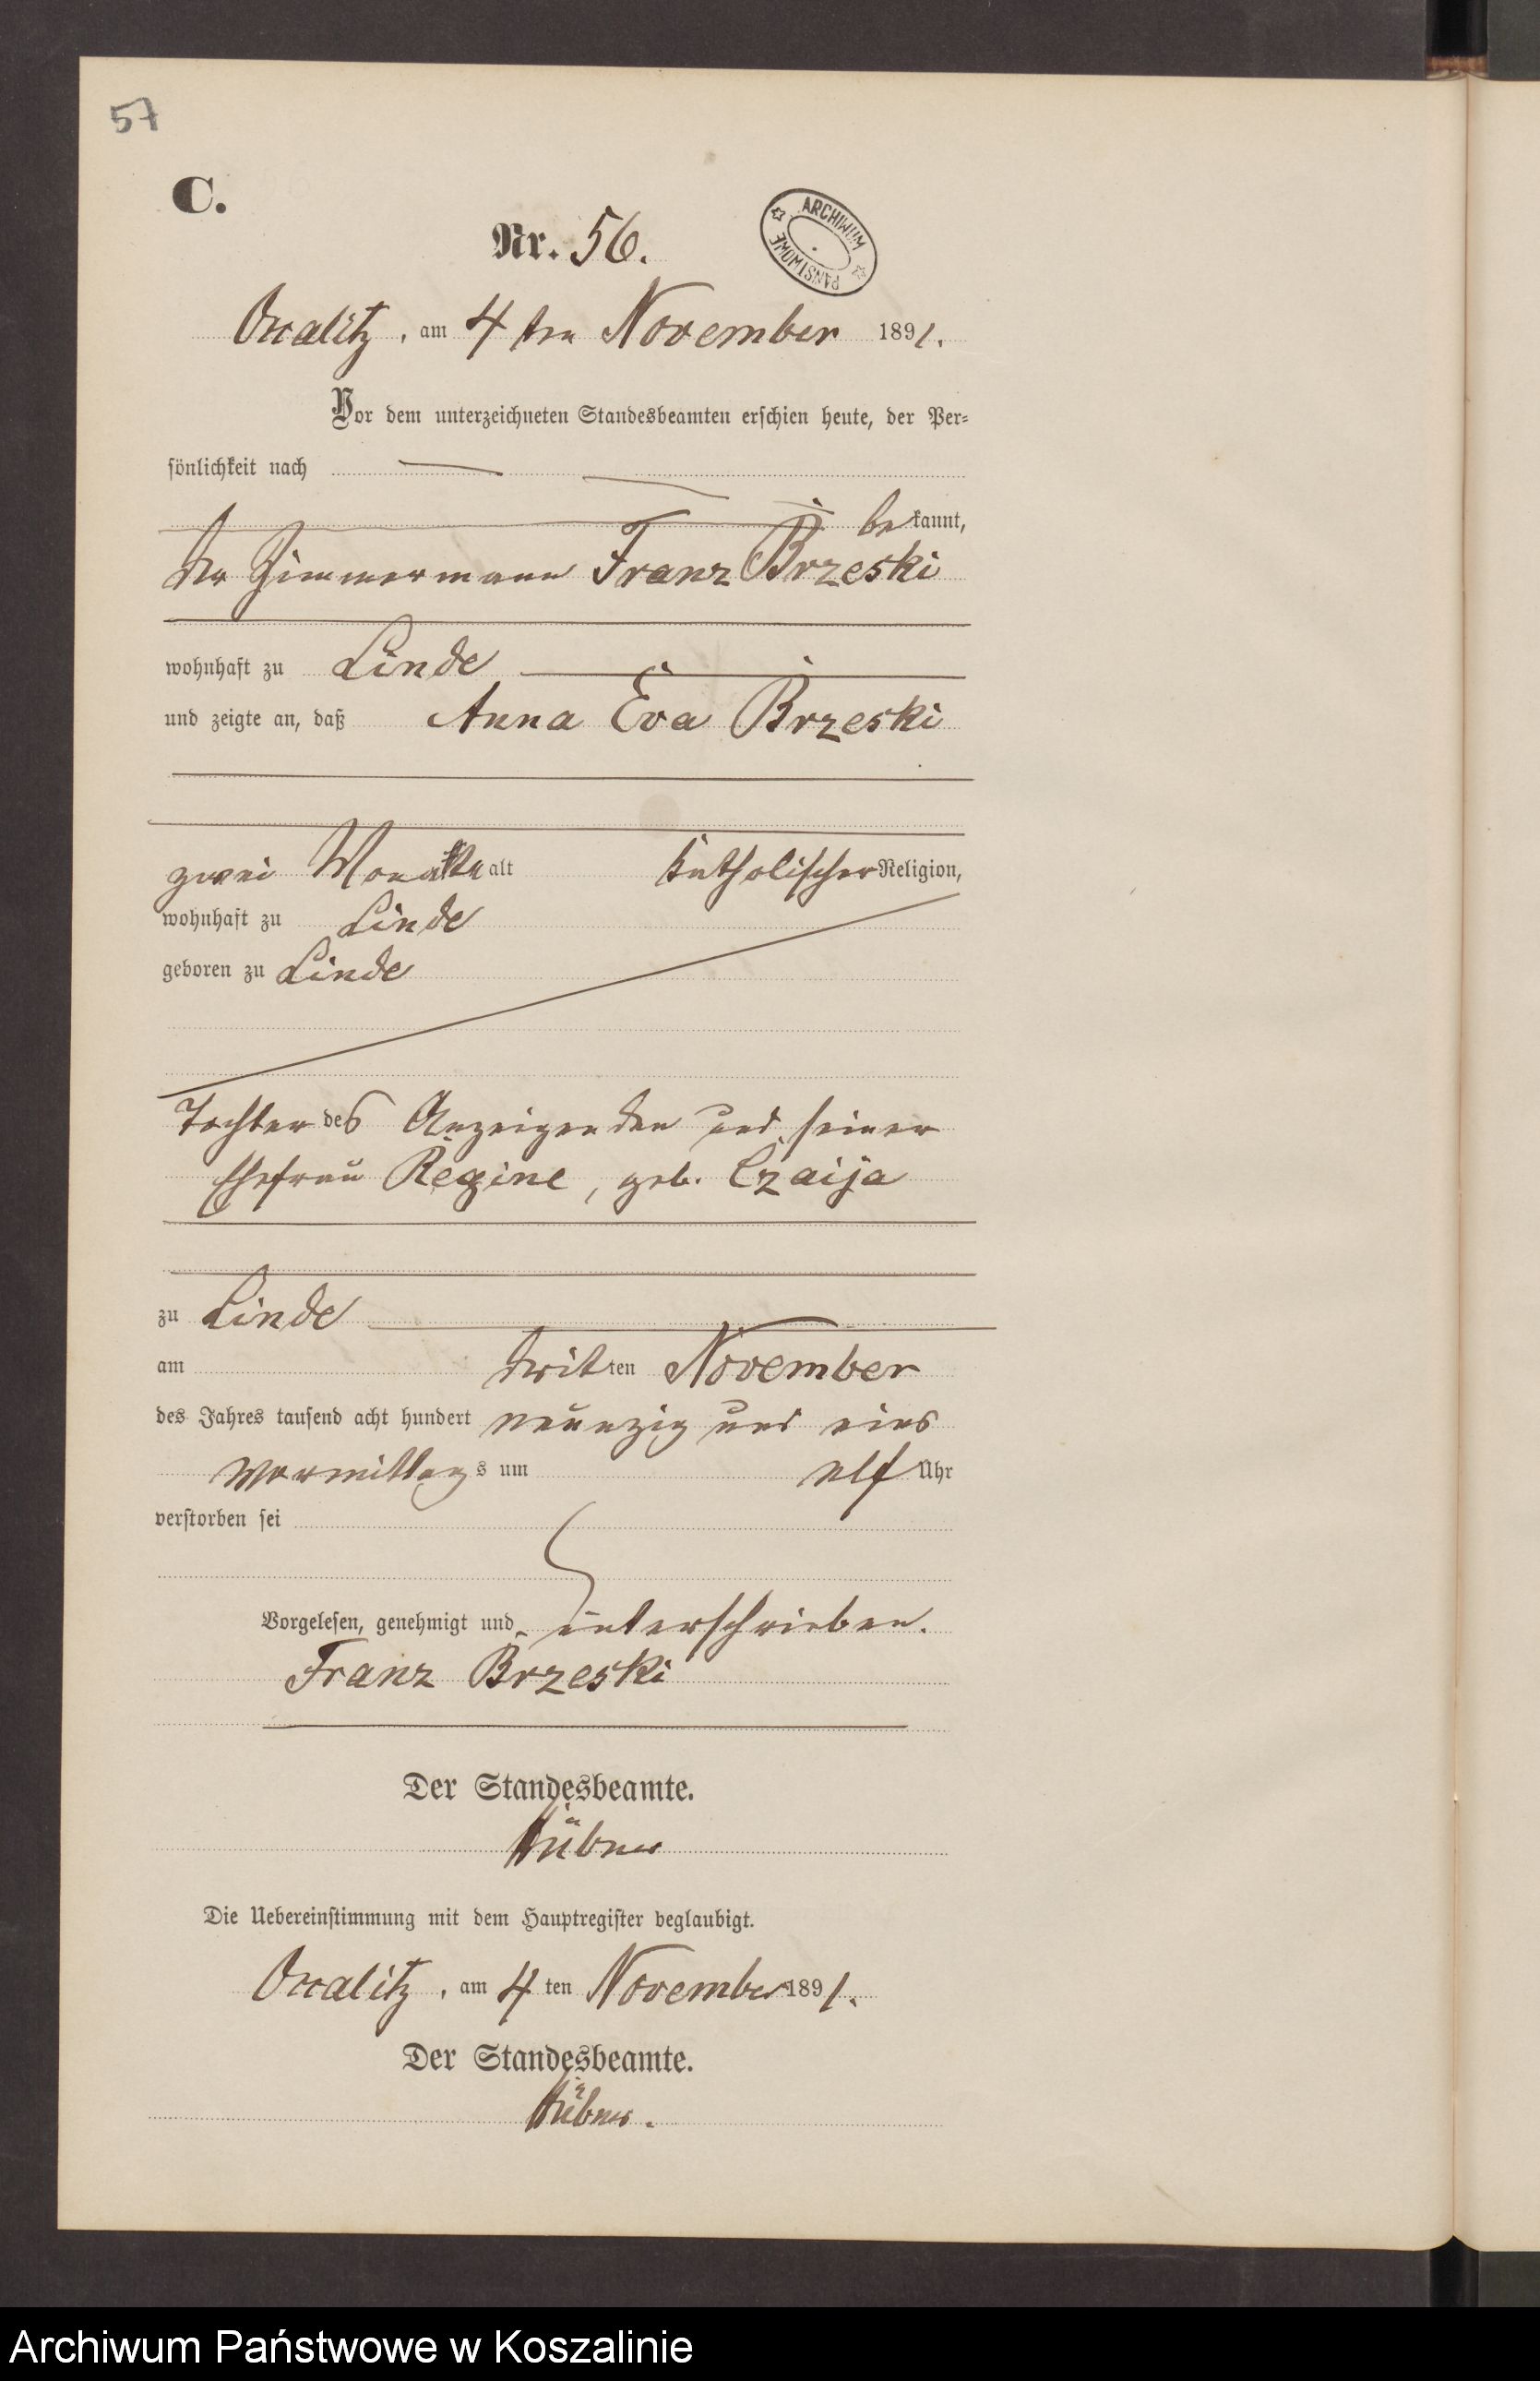 57
C.
Nr. 56.
ARCHIWUM PAŃSTWOWE
Occalitz, am 4 ten November 1891.
Vor dem unterzeichneten Standesbeamten erschien heute, der Per-
sönlichkeit nach
bekannt,
der Zimmermann Franz Brzeski
wohnhaft zu Linde
und zeigte an, daß Anna Eva Brzeski
zwei Monate alt katholischer Religion,
wohnhaft zu Linde
geboren zu Linde
Tochter des Anzeigenden und seiner
Ehefrau Regine, geb. Czaija
zu Linde
am dritten November
des Jahres tausend acht hundert neunzig und eins
Vormittags um elf Uhr
verstorben sei
Vorgelesen, genehmigt und unterschrieben.
Franz Brzeski
Der Standesbeamte.
Hübner
Die Uebereinstimmung mit dem Hauptregister beglaubigt.
Occalitz, am 4 ten November 1891.
Der Standesbeamte.
Hübner.
Archiwum Państwowe w Koszalinie